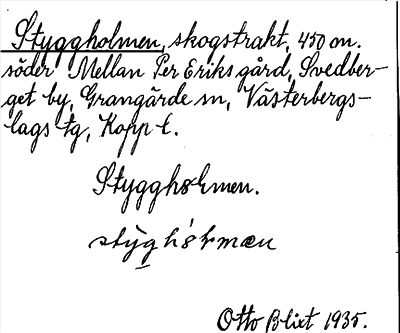 Styggholmen, skogstrakt, 450 m.
söder Mellan Per Eriks gård, Svedber-
get by, Grangärde sn, Västerbergs-
lags tg, Kopp l.
Styggholmen.
Otto Blixt 1935.